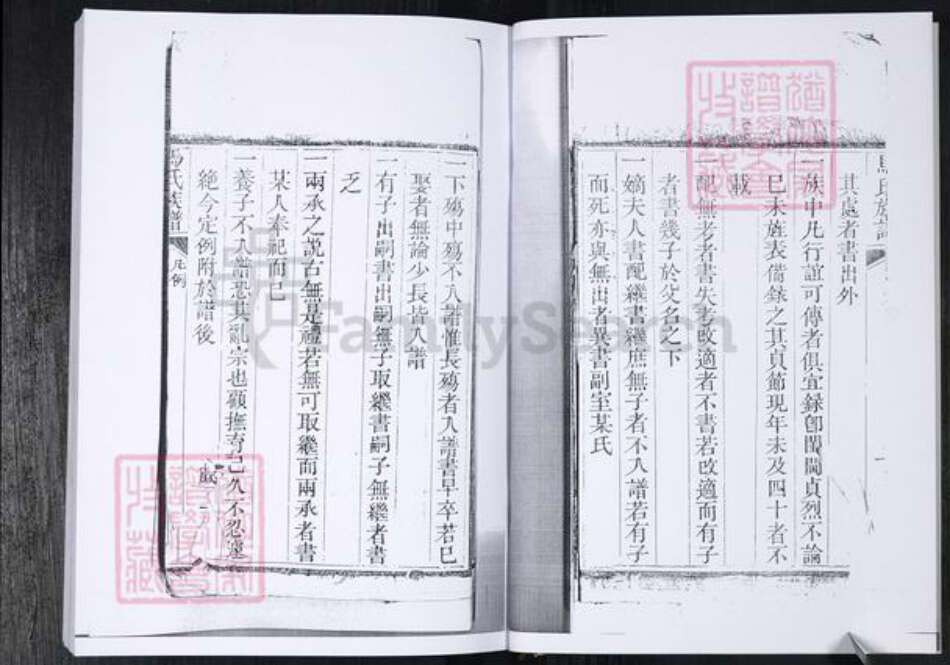 其處者書出外
一族中凡行誼可傳者俱宜録卽閨閫貞烈不論
已未旌表備録之其貞節現年未及四十者不
載
配無考者書失考改適者不書若改適而有子
者書幾子於父名之下
一嫡夫人書配繼書繼庶無子者不入譜若有子
而死亦與無出者異書副室某氏
一下殤中殤不入譜惟長殤者入譜書早卒若已
娶者無論少長皆入譜
一有子出嗣書出嗣無子取繼書嗣子無繼者書
乏
一兩承之說古無是禮若無可取繼而兩承者書
某人奉祀而已
一養子不入譜恐其亂宗也顧撫育已久不忍遽
絶今定例附於譜後
馬氏族譜 凡例
FamilySearch